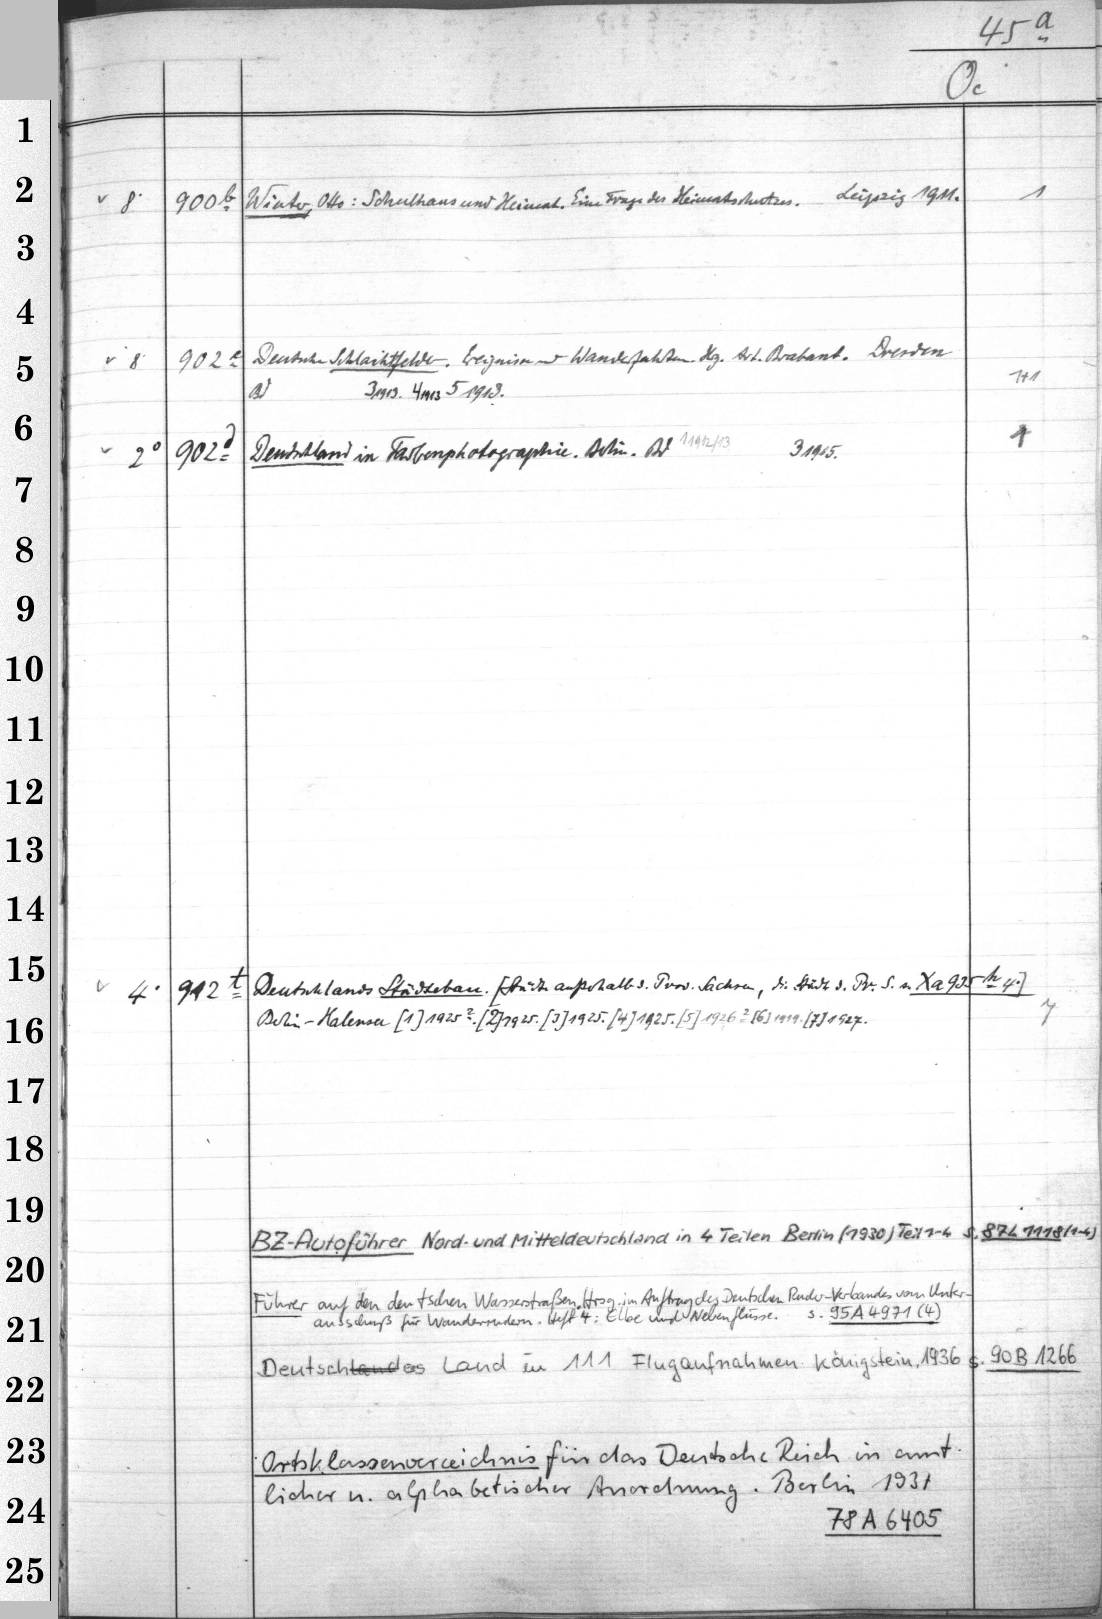 45 a
Oc
1
2
v 8° 900 b Winter, Otto: Schulhaus und Heimat. Eine Frage des Heimatschutzes. Leipzig 1911. 1
3
4
5
v 8° 902 c Deutsche Schlachtfelder. Ereignisse und Wanderfahrten. Hg. Art. Brabant. Dresden
Bd 3 1913. 4 1913 5 1913. 1+1
6
v 2° 902 d Deutschland in Farbenphotographie. Berlin. Bd 1 1912/13 3 1915. 1
7
8
9
10
11
12
13
14
15
v 4° 912 t Deutschlands Städtebau. [Städte außerhalb d. Prov. Sachsen, die Städte d. Pr. S. s. Xa 935 h 4°]
16
Berlin-Halensee [1] 1925 2. [2] 1925. [3] 1925. [4] 1925. [5] 1926 2 [6] 1919. [7] 1927. 7
17
18
19
BZ-Autoführer Nord- und Mitteldeutschland in 4 Teilen Berlin (1930) Teil 1-4 s. 87L 1118 (1-4)
20
Führer auf den deutschen Wasserstraßen. Hrsg. im Auftrag des Deutschen Ruder-Verbandes vom Unter-
21
ausschuß für Wanderrudern. Heft 4: Elbe und Nebenflüsse. s. 95A 4971 (4)
22
Deutschlandes Land in 111 Flugaufnahmen. Königstein, 1936 s. 90B 1266
23
Ortsklassenverzeichnis für das Deutsche Reich in amt-
24
licher u. alphabetischer Anordnung. Berlin 1931
78 A 6405
25